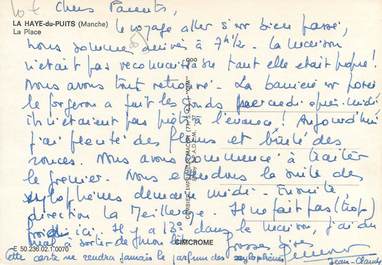 Chers Parents,
LA HAYE-du-PUITS (Manche)
La Place
Le voyage aller s'est bien passé,
nous sommes arrivés à 7h½. La maison
n'était pas reconnaissable tant elle était propre!
Nous avons tout retrouvé. La barrière est posée
le forgeron a fait les fonds mercredi après-midi
ils n'étaient pas prêts à l'avance! Aujourd'hui
j'ai planté des fleurs et brûlé des
ronces. Nous avons commencé à traiter
le premier. Nous attendons la suite des
xylophènes demain midi. Ensuite,
direction la Meilleraye. Il ne fait pas (trop)
froid ici. Il y a 13° dans la maison, j'ai du
mal à sortir de
Grosses bises
E 50.236.02.1.0070
CIMCROME
cette carte ne rendra jamais le parfum des xylophènes
Jean-Claude